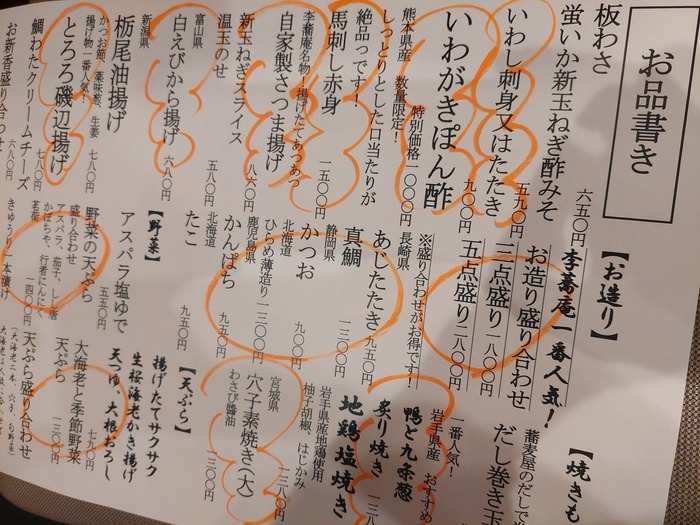 お品書き
板わさ
蛍いか新玉ねぎ酢みそ
六五〇円
いわし刺身又はたたき
五九〇円
いわがきぽん酢
九〇〇円
熊本県産 数量限定!
特別価格一〇〇〇円
しっとりとした口当たりが
絶品っです!
馬刺し赤身
一五〇〇円
李蕎庵名物!揚げたてあつあつ
自家製さつま揚げ
八六〇円
新玉ねぎスライス
温玉のせ
五八〇円
富山県
白えびから揚げ
六八〇円
新潟県
栃尾油揚げ
かつお節、薬味葱、生姜 七八〇円
揚げ物一番人気!
とろろ磯辺揚げ
七八〇円
鯛わたクリームチーズ
六八〇円
お新香盛り合わせ
【お造り】
李蕎庵一番人気!
お造り盛り合わせ
三点盛り 一八〇〇円
五点盛り 二八〇〇円
※盛り合わせがお得です!
長崎県
あじたたき
九五〇円
真鯛
一三〇〇円
静岡県
かつお
九〇〇円
北海道
ひらめ薄造り 一三〇〇円
鹿児島県
かんぱち
九五〇円
北海道
たこ
九五〇円
【野菜】
アスパラ塩ゆで
五五〇円
野菜の天ぷら
盛り合わせ
アスパラ、茄子、しし唐
かぼちゃ、行者にんにく
茗荷
一四〇〇円
きゅうり一本漬け
【焼きも
蕎麦屋のだしで
だし巻き玉
一番人気!
岩手県産 おすすめ
鴨と九条葱
炙り焼き
一三八
岩手県産地鶏使用
柚子胡椒、はじかみ
地鶏塩焼き
一三八〇円
宮城県
穴子素焼き(大)
わさび醬油
一三八〇円
【天ぷら】
揚げたてサクサク
生桜海老かき揚げ
天つゆ、大根おろし
七八〇円
大海老と季節野菜
天ぷら
一三〇〇円
天ぷら盛り合わせ